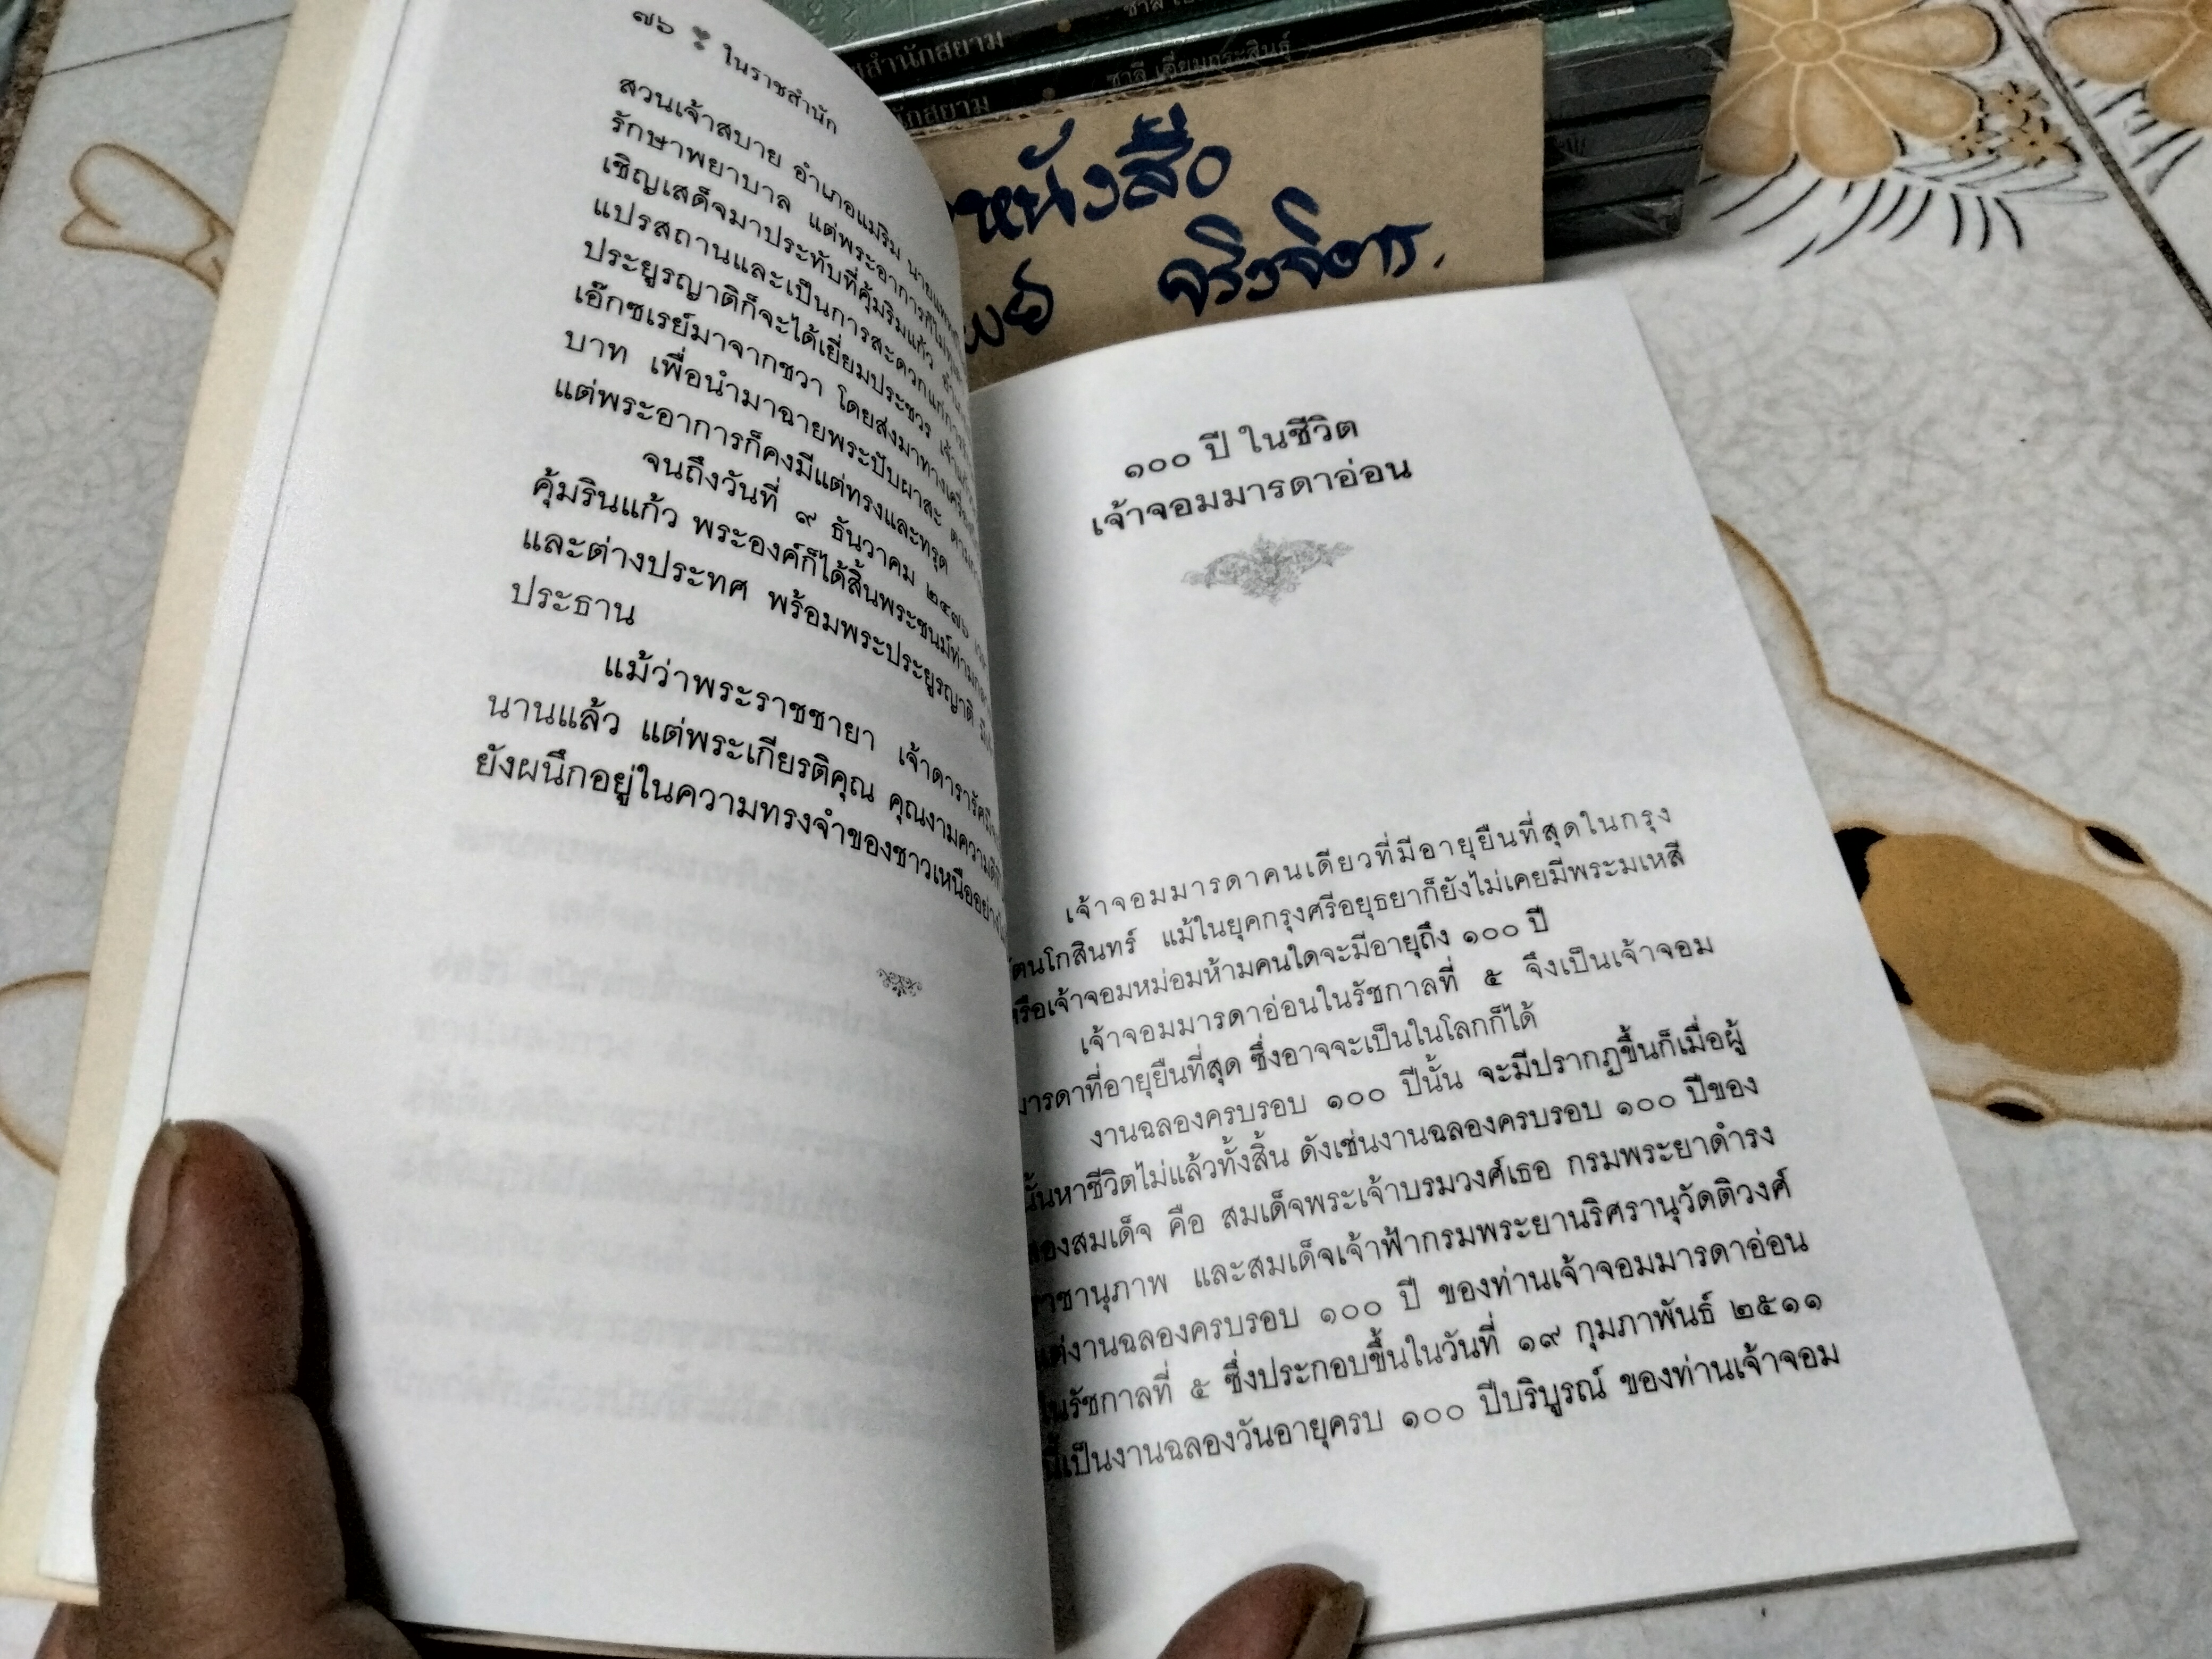 ๗๖ ในราชสำนัก
สวนเจ้าสบาย อำเภอแม่ริม
รักษาพยาบาล แต่พระอาการก็ไม่
เชิญเสด็จมาประทับที่คุ้มรินแก้ว
แปรสถานและเป็นการสะดวกแก่การ
ประยูรญาติก็จะได้เยี่ยมประชวร
เอ๊กซเรย์มาจากชวา โดยส่งมาทางเครื่อง
บาท เพื่อนำมาฉายพระปับผาสะ
แต่พระอาการก็คงมีแต่ทรงและทรุด
จนถึงวันที่ ๙ ธันวาคม ๒๔๗๖
คุ้มรินแก้ว พระองค์ก็ได้สิ้นพระชนม์ท่ามกลาง
และต่างประทศ พร้อมพระประยูรญาติ
ประธาน
แม้ว่าพระราชชายา เจ้าดารารัศมี
นานแล้ว แต่พระเกียรติคุณ คุณงามความดี
ยังผนึกอยู่ในความทรงจำของชาวเหนืออย่าง
สำนักสยาม
ชาลี เอี่ยมกระสินธุ์
นักสยาม
หนังสือ
จริงจิตร.
๑๐๐ ปี ในชีวิต
เจ้าจอมมารดาอ่อน
เจ้าจอมมารดาคนเดียวที่มีอายุยืนที่สุดในกรุง
รัตนโกสินทร์ แม้ในยุคกรุงศรีอยุธยาก็ยังไม่เคยมีพระมเหสี
หรือเจ้าจอมหม่อมห้ามคนใดจะมีอายุถึง ๑๐๐ ปี
เจ้าจอมมารดาอ่อนในรัชกาลที่ ๕ จึงเป็นเจ้าจอม
มารดาที่อายุยืนที่สุด ซึ่งอาจจะเป็นในโลกก็ได้
งานฉลองครบรอบ ๑๐๐ ปีนั้น จะมีปรากฏขึ้นก็เมื่อผู้
นั้นหาชีวิตไม่แล้วทั้งสิ้น ดังเช่นงานฉลองครบรอบ ๑๐๐ ปีของ
สองสมเด็จ คือ สมเด็จพระเจ้าบรมวงศ์เธอ กรมพระยาดำรง
ราชานุภาพ และสมเด็จเจ้าฟ้ากรมพระยานริศรานุวัดติวงศ์
แต่งานฉลองครบรอบ ๑๐๐ ปี ของท่านเจ้าจอมมารดาอ่อน
ในรัชกาลที่ ๕ ซึ่งประกอบขึ้นในวันที่ ๑๙ กุมภาพันธ์ ๒๕๑๑
นี้เป็นงานฉลองวันอายุครบ ๑๐๐ ปีบริบูรณ์ ของท่านเจ้าจอม